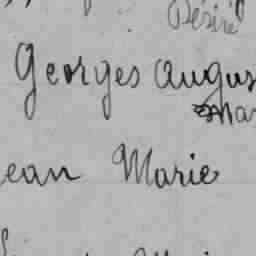 Désiré
Georges Augus
Mar
ean Marie